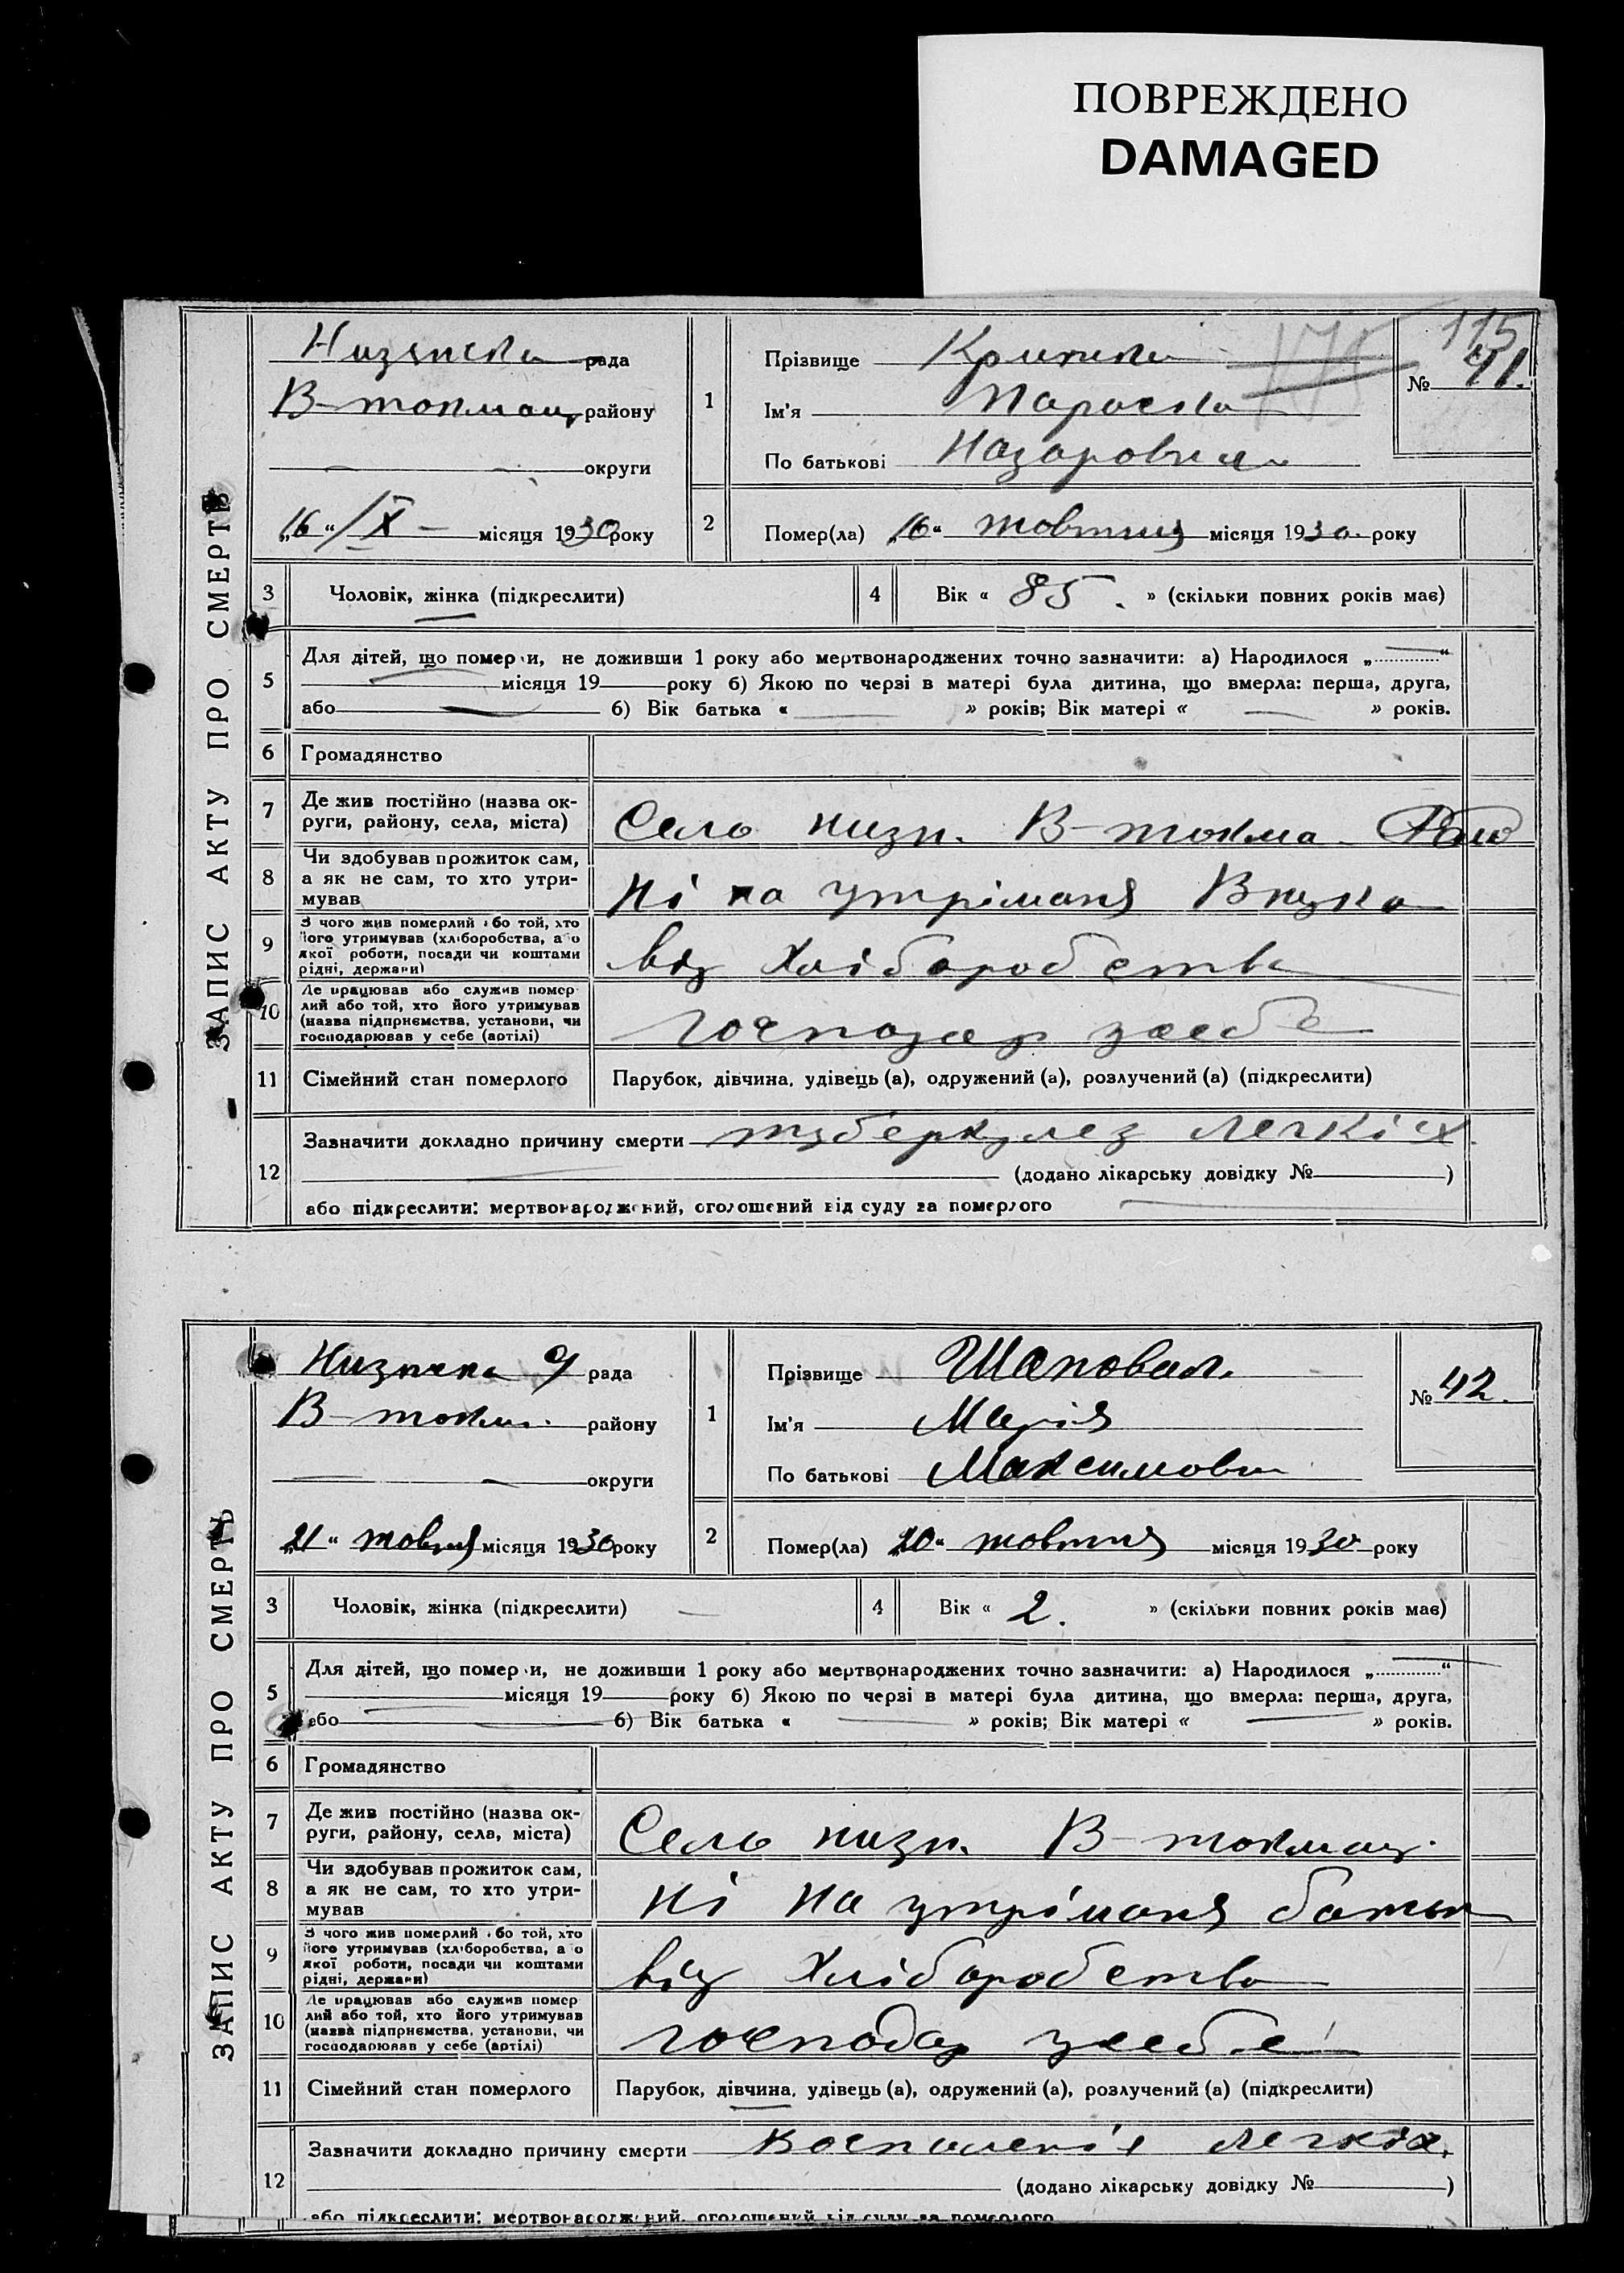 ПОВРЕЖДЕНО
DAMAGED
ЗАПИС АКТУ ПРО СМЕРТЬ
рада
В-токмац району
округи
„16“ /X — місяця 1930 року
1
Прізвище
Ім'я Параска
По батькові Назаровна
115
№ 41.
2
Помер(ла) „16“ жовтня місяця 1930. року
3 Чоловік, жінка (підкреслити)
4 Вік « 85. » (скільки повних років має)
5 Для дітей, що помер и, не доживши 1 року або мертвонароджених точно зазначити: а) Народилося „............“
місяця 19 року б) Якою по черзі в матері була дитина, що вмерла: перша, друга,
або 6) Вік батька « » років; Вік матері « » років.
6 Громадянство
7 Де жив постійно (назва ок-
руги, району, села, міста)
Село низн. В-токма
8 Чи здобував прожиток сам,
а як не сам, то хто утри-
мував
Ні на утріманя Внука
9 З чого жив померлий або той, хто
його утримував (хліборобства, або
якої роботи, посади чи коштами
рідні, держави)
від Хліборобства
10 Де працював або служив помер
лий або той, хто його утримував
(назва підприємства, установи, чи
господарював у себе (артілі)
господар усебе
11 Сімейний стан померлого
Парубок, дівчина, удівець (а), одружений (а), розлучений (а) (підкреслити)
12 Зазначити докладно причину смерти туберкулез легкіх.
(додано лікарську довідку № )
або підкреслити: мертвонароджений, оголошений від суду за померлого
ЗАПИС АКТУ ПРО СМЕРТЬ
рада
В-токм. району
округи
„21“ жовтня місяця 1930 року
1
Прізвище Шаповал.
Ім'я Марія
По батькові Максимовн
№ 42.
2
Помер(ла) „20“ жовтня місяця 1930 року
3 Чоловік, жінка (підкреслити)
4 Вік « 2. » (скільки повних років має)
5 Для дітей, що помер и, не доживши 1 року або мертвонароджених точно зазначити: а) Народилося „............“
місяця 19 року б) Якою по черзі в матері була дитина, що вмерла: перша, друга,
або 6) Вік батька « » років; Вік матері « » років.
6 Громадянство
7 Де жив постійно (назва ок-
руги, району, села, міста)
Село низн. В-токмац.
8 Чи здобував прожиток сам,
а як не сам, то хто утри-
мував
Ні На утріманя батьк
9 З чого жив померлий або той, хто
його утримував (хліборобства, або
якої роботи, посади чи коштами
рідні, держави)
від Хліборобства
10 Де працював або служив помер
лий або той, хто його утримував
(назва підприємства, установи, чи
господарював у себе (артілі)
господар усебе
11 Сімейний стан померлого
Парубок, дівчина, удівець (а), одружений (а), розлучений (а) (підкреслити)
12 Зазначити докладно причину смерти Воспаленія легкіх.
(додано лікарську довідку № )
або підкреслити: мертвонароджений, оголошений від суду за померлого